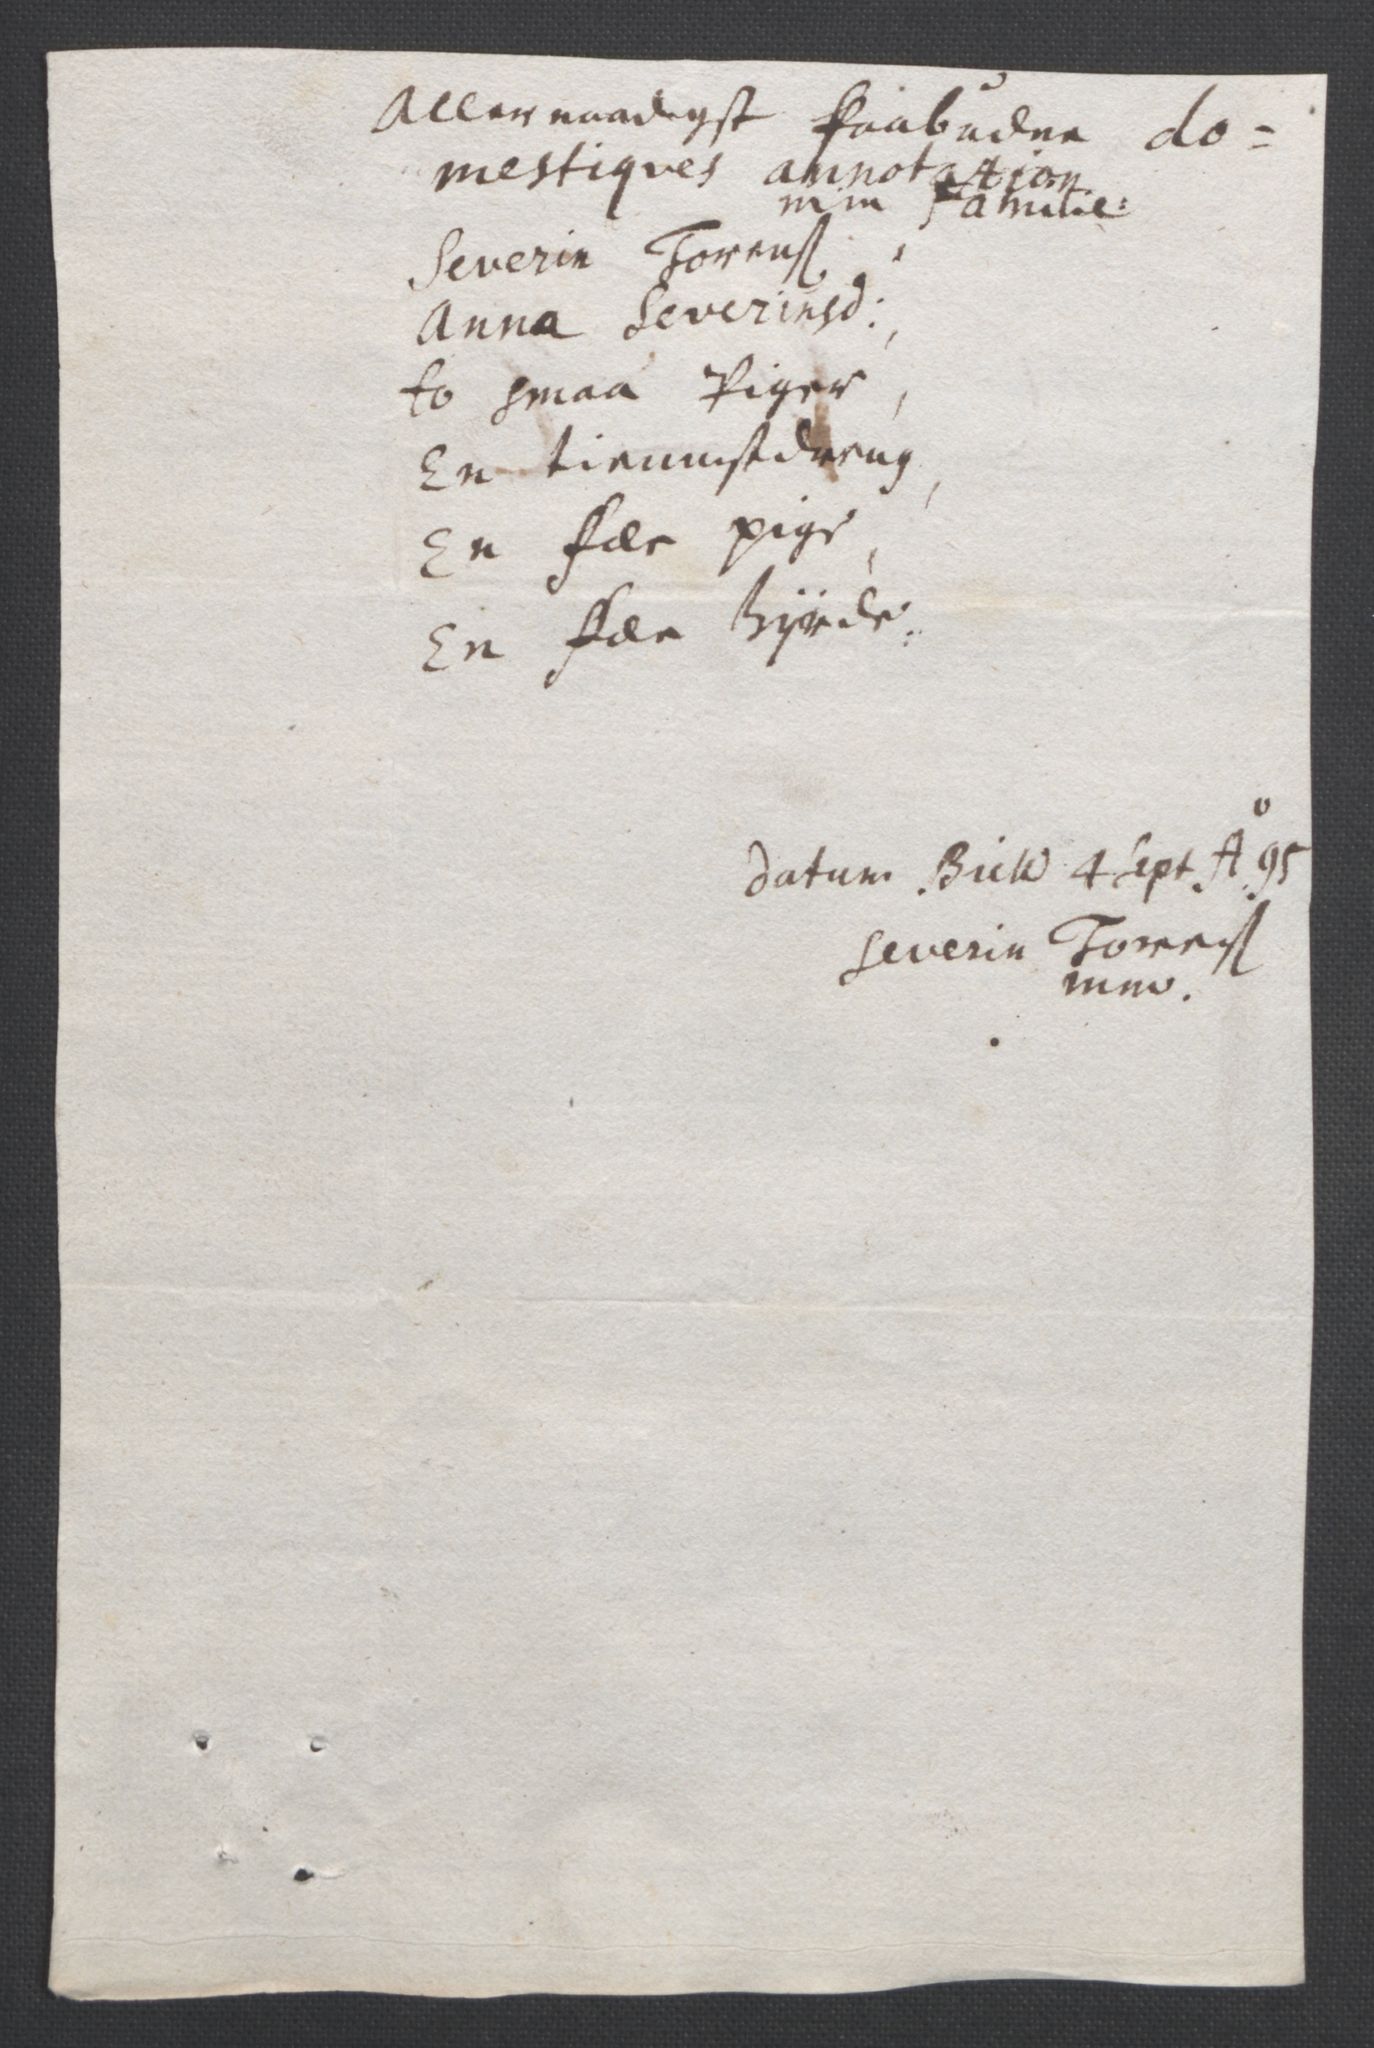 Allernaadigst paabudne do=
mestiqves annotation
min Familie:
Severin Torenß,
Anna Severinsd:,
to smaa Piger,
En tiennistdreng,
En fæe pige,
En fæe hyrde.
Datum 4 Sept Ao 95
Severin Torenß
mmo.